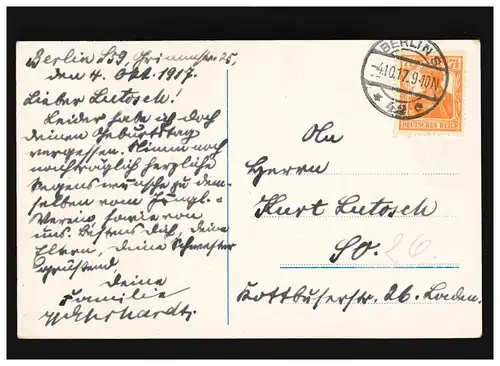 Berlin S59, Grimmstr. 25,
den 4. Okt. 1917.
Lieber Lutosch!
Leider habe ich doch
deinen Geburtstag
vergessen. Nimm noch
nachträglich herzliche
Segenswünsche zu dem-
selben vom Jüngl.-
Verein, sowie von
uns. Bestens dich, deine
Eltern, deine Schwester
grüssend
deine
Familie
BERLIN S
-4.10.17.9-10N
* 42 c
7½
DEUTSCHES REICH
An
Herrn
Kurt Lutosch
So. 26
Kottbuserstr. 26. Laden.